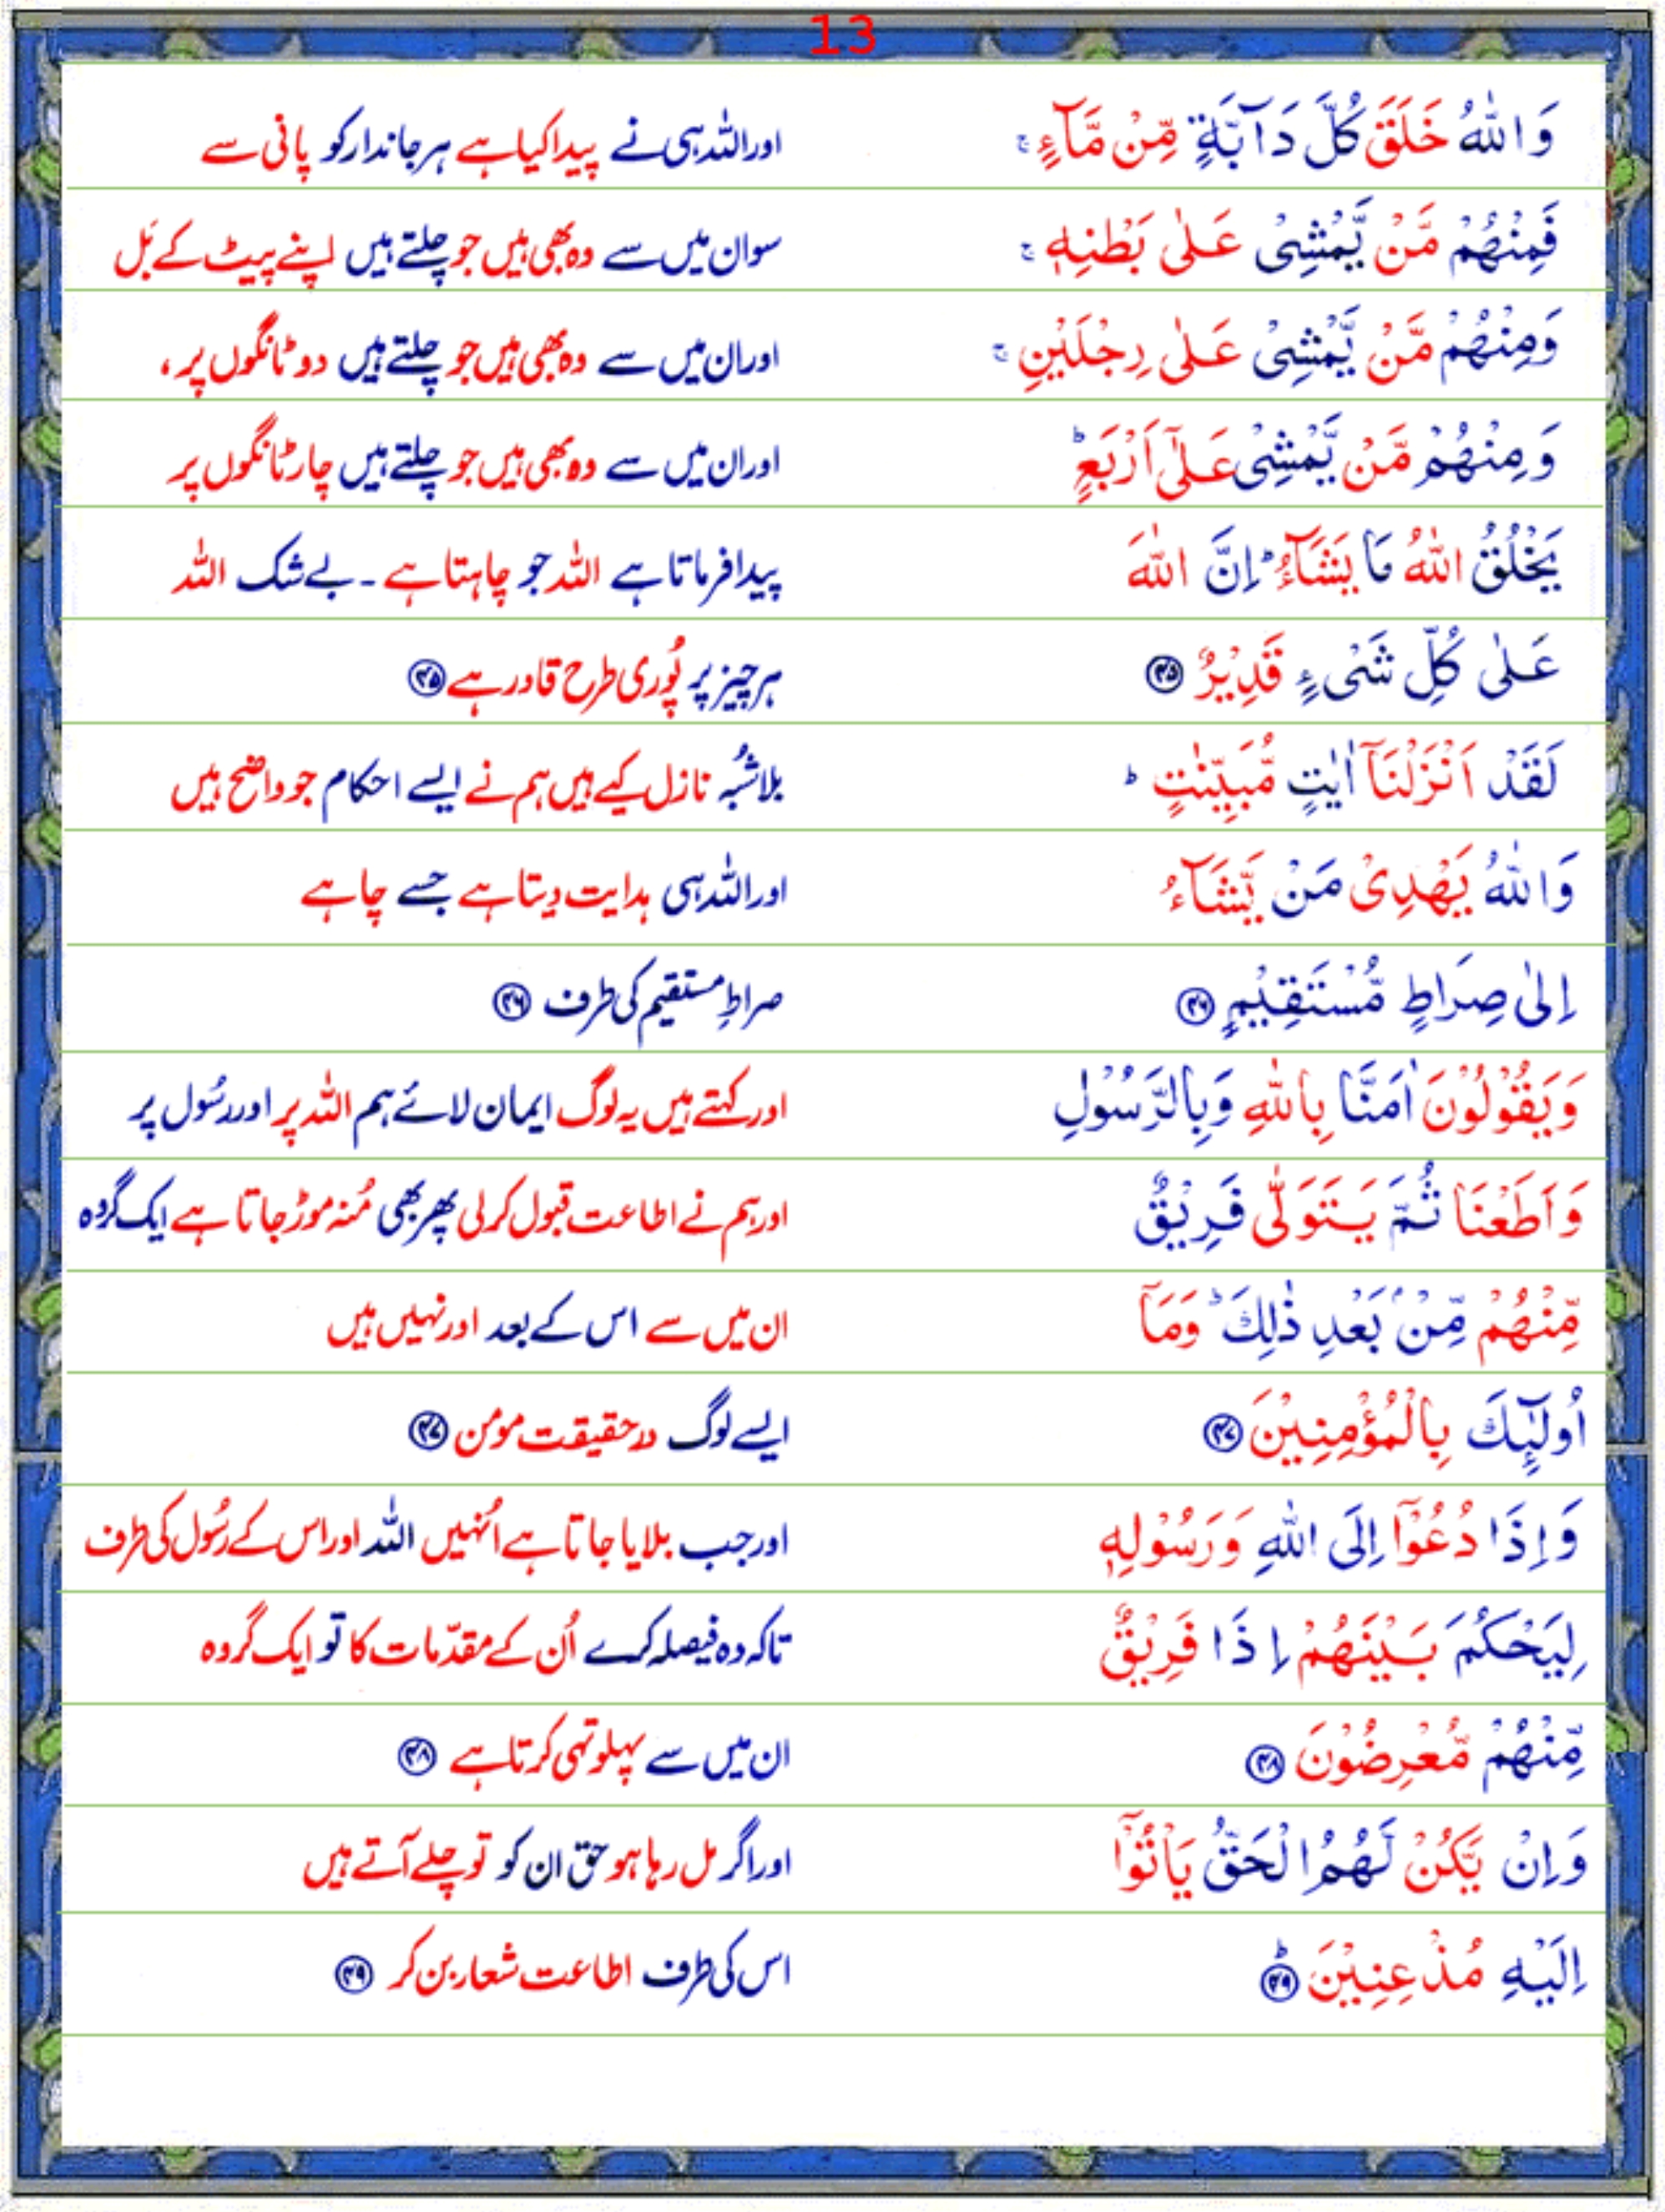 13
وَاللّٰهُ خَلَقَ كُلَّ دَآبَّةٍ مِّنْ مَّآءٍ ۚ اور اللہ ہی نے پیدا کیا ہے ہر جاندار کو پانی سے
فَمِنْهُمْ مَّنْ يَّمْشِىْ عَلٰى بَطْنِهٖ ۚ سو ان میں سے وہ بھی ہیں جو چلتے ہیں اپنے پیٹ کے بَل
وَمِنْهُمْ مَّنْ يَّمْشِىْ عَلٰى رِجْلَيْنِ ۚ اور ان میں سے وہ بھی ہیں جو چلتے ہیں دو ٹانگوں پر،
وَمِنْهُمْ مَّنْ يَّمْشِىْ عَلٰٓى اَرْبَعٍ ؕ اور ان میں سے وہ بھی ہیں جو چلتے ہیں چار ٹانگوں پر
يَخْلُقُ اللّٰهُ مَا يَشَآءُ ؕ اِنَّ اللّٰهَ پیدا فرماتا ہے اللہ جو چاہتا ہے ۔ بے شک اللہ
عَلٰى كُلِّ شَىْءٍ قَدِيْرٌ ۴۵ ہر چیز پر پُوری طرح قادر ہے ۴۵
لَقَدْ اَنْزَلْنَاۤ اٰيٰتٍ مُّبَيِّنٰتٍ ؕ بلاشُبہ نازل کیے ہیں ہم نے ایسے احکام جو واضح ہیں
وَاللّٰهُ يَهْدِىْ مَنْ يَّشَآءُ اور اللہ ہی ہدایت دیتا ہے جسے چاہے
اِلٰى صِرَاطٍ مُّسْتَقِيْمٍ ۴۶ صراطِ مستقیم کی طرف ۴۶
وَيَقُوْلُوْنَ اٰمَنَّا بِاللّٰهِ وَبِالرَّسُوْلِ اور کہتے ہیں یہ لوگ ایمان لائے ہم اللہ پر اور رسُول پر
وَاَطَعْنَا ثُمَّ يَتَوَلّٰى فَرِيْقٌ اور ہم نے اطاعت قبول کرلی پھر بھی مُنہ موڑ جاتا ہے ایک گروہ
مِّنْهُمْ مِّنْۢ بَعْدِ ذٰلِكَ ؕ وَمَاۤ ان میں سے اس کے بعد اور نہیں ہیں
اُولٰٓئِكَ بِالْمُؤْمِنِيْنَ ۴۷ ایسے لوگ درحقیقت مومن ۴۷
وَاِذَا دُعُوْۤا اِلَى اللّٰهِ وَرَسُوْلِهٖ اور جب بلایا جاتا ہے اُنہیں اللہ اور اس کے رسُول کی طرف
لِيَحْكُمَ بَيْنَهُمْ اِذَا فَرِيْقٌ تاکہ وہ فیصلہ کرے اُن کے مقدّمات کا تو ایک گروہ
مِّنْهُمْ مُّعْرِضُوْنَ ۴۸ ان میں سے پہلو تہی کرتا ہے ۴۸
وَاِنْ يَّكُنْ لَّهُمُ الْحَقُّ يَاْتُوْۤا اور اگر مل رہا ہو حق ان کو تو چلے آتے ہیں
اِلَيْهِ مُذْعِنِيْنَ ؕ ۴۹ اس کی طرف اطاعت شعار بن کر ۴۹